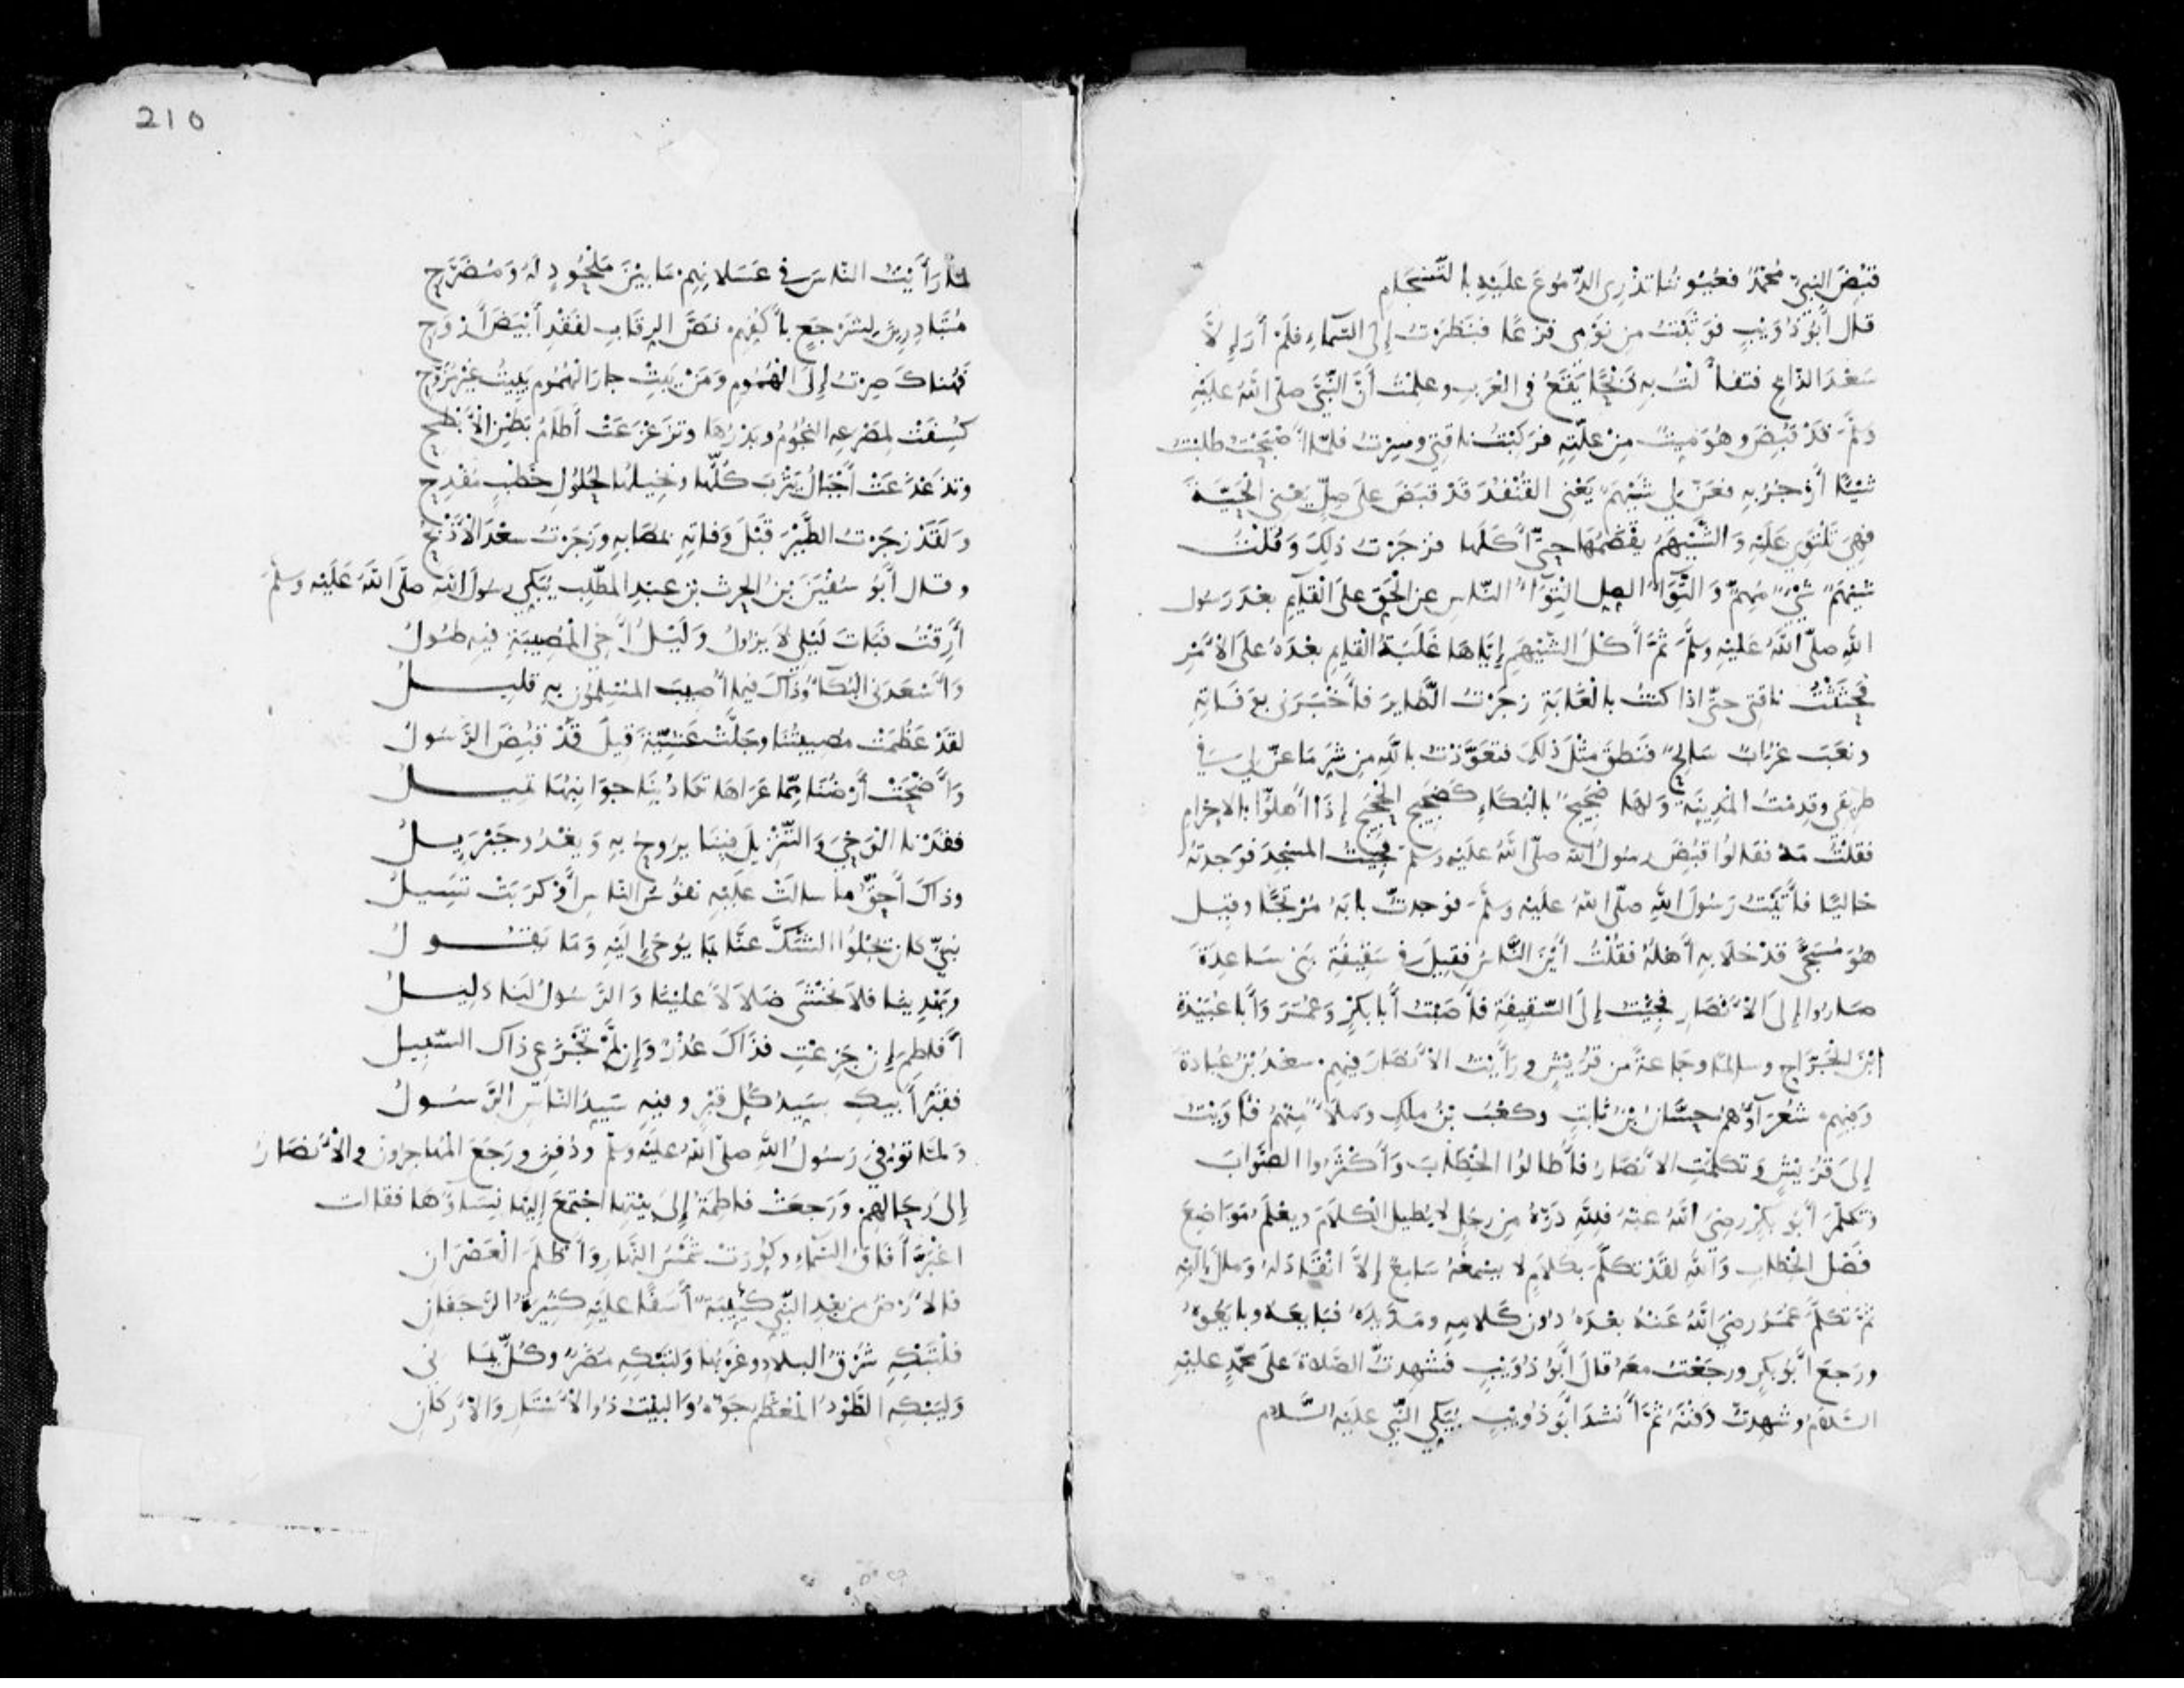 قُبِضَ النبيّ مُحَمَّدٌ فعُيُونُنا تذْرِى الدُّمُوعَ عَلَيْهِ بالتَّسْجَامِ
قال أَبُو ذُؤَيْبٍ فَوَثَبْتُ مِن نَوْمى فَزِعًا فنَظَرْتُ إِلَى السَّمَاءِ فلَمْ أَرَ إِلَّا
سَعْدَ الذَّابِحِ فتفاءَلْتُ بِهِ ذَبْحًا يَقَعُ فى العَرَبِ وعلِمْتُ أَنَّ النَّبِيَّ صلّى اللهُ عَلَيْهِ
وسلَّمَ قَدْ قُبِضَ وهُوَ مَيِّتٌ مِنْ عِلَّتِهِ فرَكِبْتُ ناقتِى وسِرْتُ فلمّا أَصْبَحْتُ طلبْتُ
شَيْئًا أَزْجُرُ بِهِ فعَنَّ لِى شَيْهَمٌ يَعْنِى القُنْفُذَ قَدْ قبَضَ على صِلٍّ يعْنِى الحَيَّةَ
فهِىَ تَلْتَوِى عَلَيْهِ وَالشَّيْهَمُ يقْضَمُها حتَّى أَكَلَها فزجَرْتُ ذلِكَ وَقُلْتُ
شَيْهَمٌ شَىْءٌ مُهِمٌّ وَالْتِوَاءُ الصِل الْتِوَاءُ النّاسِ عنِ الْحَقّ علَى الْقآئِمِ بعْدَ رَسُول
اللهِ صلّى اللهُ عَلَيْهِ وسلَّمَ ثُمَّ أَكْلُ الشَّيْهَمِ إِيَّاهَا غَلَبَةُ القآئِمِ بعْدَهُ علَى الأَمْرِ
فحَثَثْتُ ناقتِى حتّى اذا كنتُ بالْغَابَةِ زجَرْتُ الطَّايِرَ فأَخْبَرَنى بوَفَاتِهِ
ونعَبَ غُرَابٌ سَانِحٌ فنَطقَ مثْلَ ذلِكَ فتعَوَّذْتُ باللهِ مِن شَرِّ مَا عَنَّ لِى فِى
طرِيقى وقدِمْتُ المَدِينَةَ وَلها ضَجِيجٌ بالْبُكَاءِ كَضَجِيجِ الْحَجِيجِ إِذَا أَهلُّوا بالإِحْرَامِ
فقلْتُ مَهْ فقالُوا قبُضَ رسُولُ الله صلّى اللهُ علَيْهِ وسلّمَ فجِيْتُ المسْجِدَ فوَجدتُهُ
خاليًا فأَتَيْتُ رَسُولَ اللهِ صلّى اللهُ علَيْهِ وسلَّمَ فوَجدتُّ بابَهُ مُرْتَجًا وقيل
هُوَ مُسَجًّى قدْ خَلَا بِهِ أَهْلُهُ فقُلْتُ أَيْنَ النَّاسُ فقِيلَ فى سَقِيفَةِ بَنى سَاعِدَةَ
صَارُوا إِلَى الأَنْصَارِ فجِيْتُ إِلَى السَّقِيفَةِ فأَصَبْتُ أَبا بكْرٍ وَعُمَرَ وَأَبا عُبَيْدَةَ
ابْنَ الجَرَّاحِ وسالمًا وجَمَاعةً من قُرَيْشٍ ورَأَيْتُ الأَنْصَارَ فيهِم سعْدُ بْنُ عُبادَةَ
وَفيهِم شُعَرَآؤُهُم حسَّانُ بْنُ ثابِتٍ وكعْبُ بْنُ ملِكٍ ومَلَأٌ مِنْهُمْ فأَوَيْتُ
إِلَى قُرَيْشٍ وتكَلَّمَتِ الأَنْصَارُ فأَطالُوا الخِطَابَ وَأَكْثَرُوا الصَّوَابَ
وَتكَلَّمَ أَبُو بكْرٍ رضِىَ اللهُ عنهُ فلِلَّهِ دَرُّهُ مِن رجُلٍ لا يُطِيل الْكلَامَ ويعْلَمُ مَوَاضِعَ
فَصْل الْخِطابِ وَاللهِ لقَدْ تكَلَّمَ بكَلَامٍ لا يسْمَعُهُ سَامِعٌ إِلَّا انْقَادَ لَهُ وَمالَ إِلَيْهِ
ثُمَّ تكَلَّمَ عُمَرُ رضِىَ اللهُ عَنْهُ بعْدَهُ دُونَ كَلَامِهِ ومَدَّ يدَهُ فبَايعَهُ وبايَعُوهُ
ورَجعَ أَبُو بكرٍ ورجَعْتُ معَهُ قالَ أَبُو ذُؤَيْبٍ فشهِدتُّ الصَّلاةَ علَى محمَّدٍ عليْهِ
السَّلامُ وشهِدتُ دَفْنَهُ ثُمَّ أَنشَدَ أَبُو ذُؤَيْبٍ يُبَكِّى النَّبِىَّ علَيْهِ السَّلَام
لمّا رَأَيْتُ النّاسَ فى عَسَلانِهِمْ مَا بَيْنَ مَلْحُودٍ لَهُ وَمُضَرَّحِ
مُتَبَادِرِينَ لِشَرْجَعٍ بأَكُفِّهِمْ نصَّ الرِقَابِ لفَقْدِ أَبْيَضَ أَرْوَحِ
فَهُنَاكَ صِرْتُ إِلَى الهُمُومِ وَمَنْ يَبِتْ جارَ الهُمُومِ يَبِيتُ غيْرَ مُرَوَّحِ
كُسِفَتْ لِمَصْرَعِهِ النجُومُ وبَدْرُهَا وتزَعْزَعَتْ أَطَامُ بَطْنِ الأَبْطَحِ
وتزَعْزَعَتْ أَجْبَالُ يَثْرِبَ كُلُّها ونَخِيلُها لحُلُولِ خَطْبٍ مُفْدِحِ
وَلَقَدْ زجَرْتُ الطَّيْرَ قَبْلَ وَفاتِهِ بمُصَابِهِ وزَجَرْتُ سعْدَ الأَذْبَحِ
وقال أَبُو سُفْيَنَ بْنُ الحرث بن عبدِ المطّلِب يُبَكِى رسُولَ الله صلّى اللهُ عَلَيْهِ وسلَّمَ
أَرِقْتُ فبَاتَ لَيْلِى لَا يزُولُ وَلَيْلُ أَخِى الْمُصِيبَةِ فيهِ طُولُ
وَأَسْعَدَنى البُكَاءُ وَذَاكَ فيمَا أُصِيبَ المُسْلِمُونَ بِهِ قليلُ
لقَدْ عَظُمَتْ مصِيبَتُنَا وجَلَّتْ عَشِيَّةَ قيلَ قَدْ قُبِضَ الرَّسُولُ
وَأَضْحَتْ أَرْضُنَا مِمَّا عَرَاهَا تكَادُ بِنَا جوَانِبُهَا تمِيلُ
فقَدْنا الْوَحْىَ وَالتَّنْزِيلَ فِينَا يرُوحُ بِهِ وَيغْدُو جَبْرَئِيلُ
وذاكَ أَحَقُّ ما سالتْ علَيْهِ نفُوسُ النَّاسِ أَوْ كرَبَتْ تسِيلُ
نبِىٌّ كَانَ يَجْلُوا الشَّكَّ عَنَّا بمَا يُوحَى إِلَيْهِ وَمَا يَقُولُ
ويَهْدِينَا فلَا نَخْشَى ضَلَالًا علَيْنَا وَالرَّسُولُ لنَا دَلِيلُ
أَفَاطِمَ إِنْ جَزِعْتِ فذَاكَ عُذْرٌ وَإِن لَّمْ تَجْزَعِى ذاكَ السَّبِيلُ
فقَبْرُ أَبِيكِ سَيِّدُ كُلِّ قبْرٍ وفِيهِ سَيّدُ النّاسِ الرَّسُولُ
وَلمَّا تُوُفِّىَ رَسُولُ اللهِ صلّى اللهُ علَيْهِ وسلّم ودُفِنَ ورَجَعَ المُهاجِرُونَ والأَنْصَارُ
إِلَى رِحَالِهِمْ وَرَجعَتْ فاطِمَةُ إِلَى بيْتِها اجْتمَعَ إِلَيْها نِسَاؤُهَا فقالت
اغْبَرَّ أَفَاقُ السَّمَاءِ وكُوِّرَتْ شَمْسُ النَّهارِ وَأَظْلَمَ الْعَصْرَانِ
فالأَرْضُ مِن بعْدِ النَّبِىِّ كئِيبَةٌ أَسَفًا علَيْهِ كَثِيرَةُ الرَّجَفَانِ
فلْتَبْكِهِ شَرْقُ البِلادِ وغَرْبُها وَلتَبْكِهِ مُضَرٌ وكُلُّ يَمَانى
وَلْيَبْكِهِ الطَّوْدُ المُعَظَّمُ جَوُّهُ وَالبَيْتُ ذُو الأَسْتَارِ وَالأَرْكَانِ
210